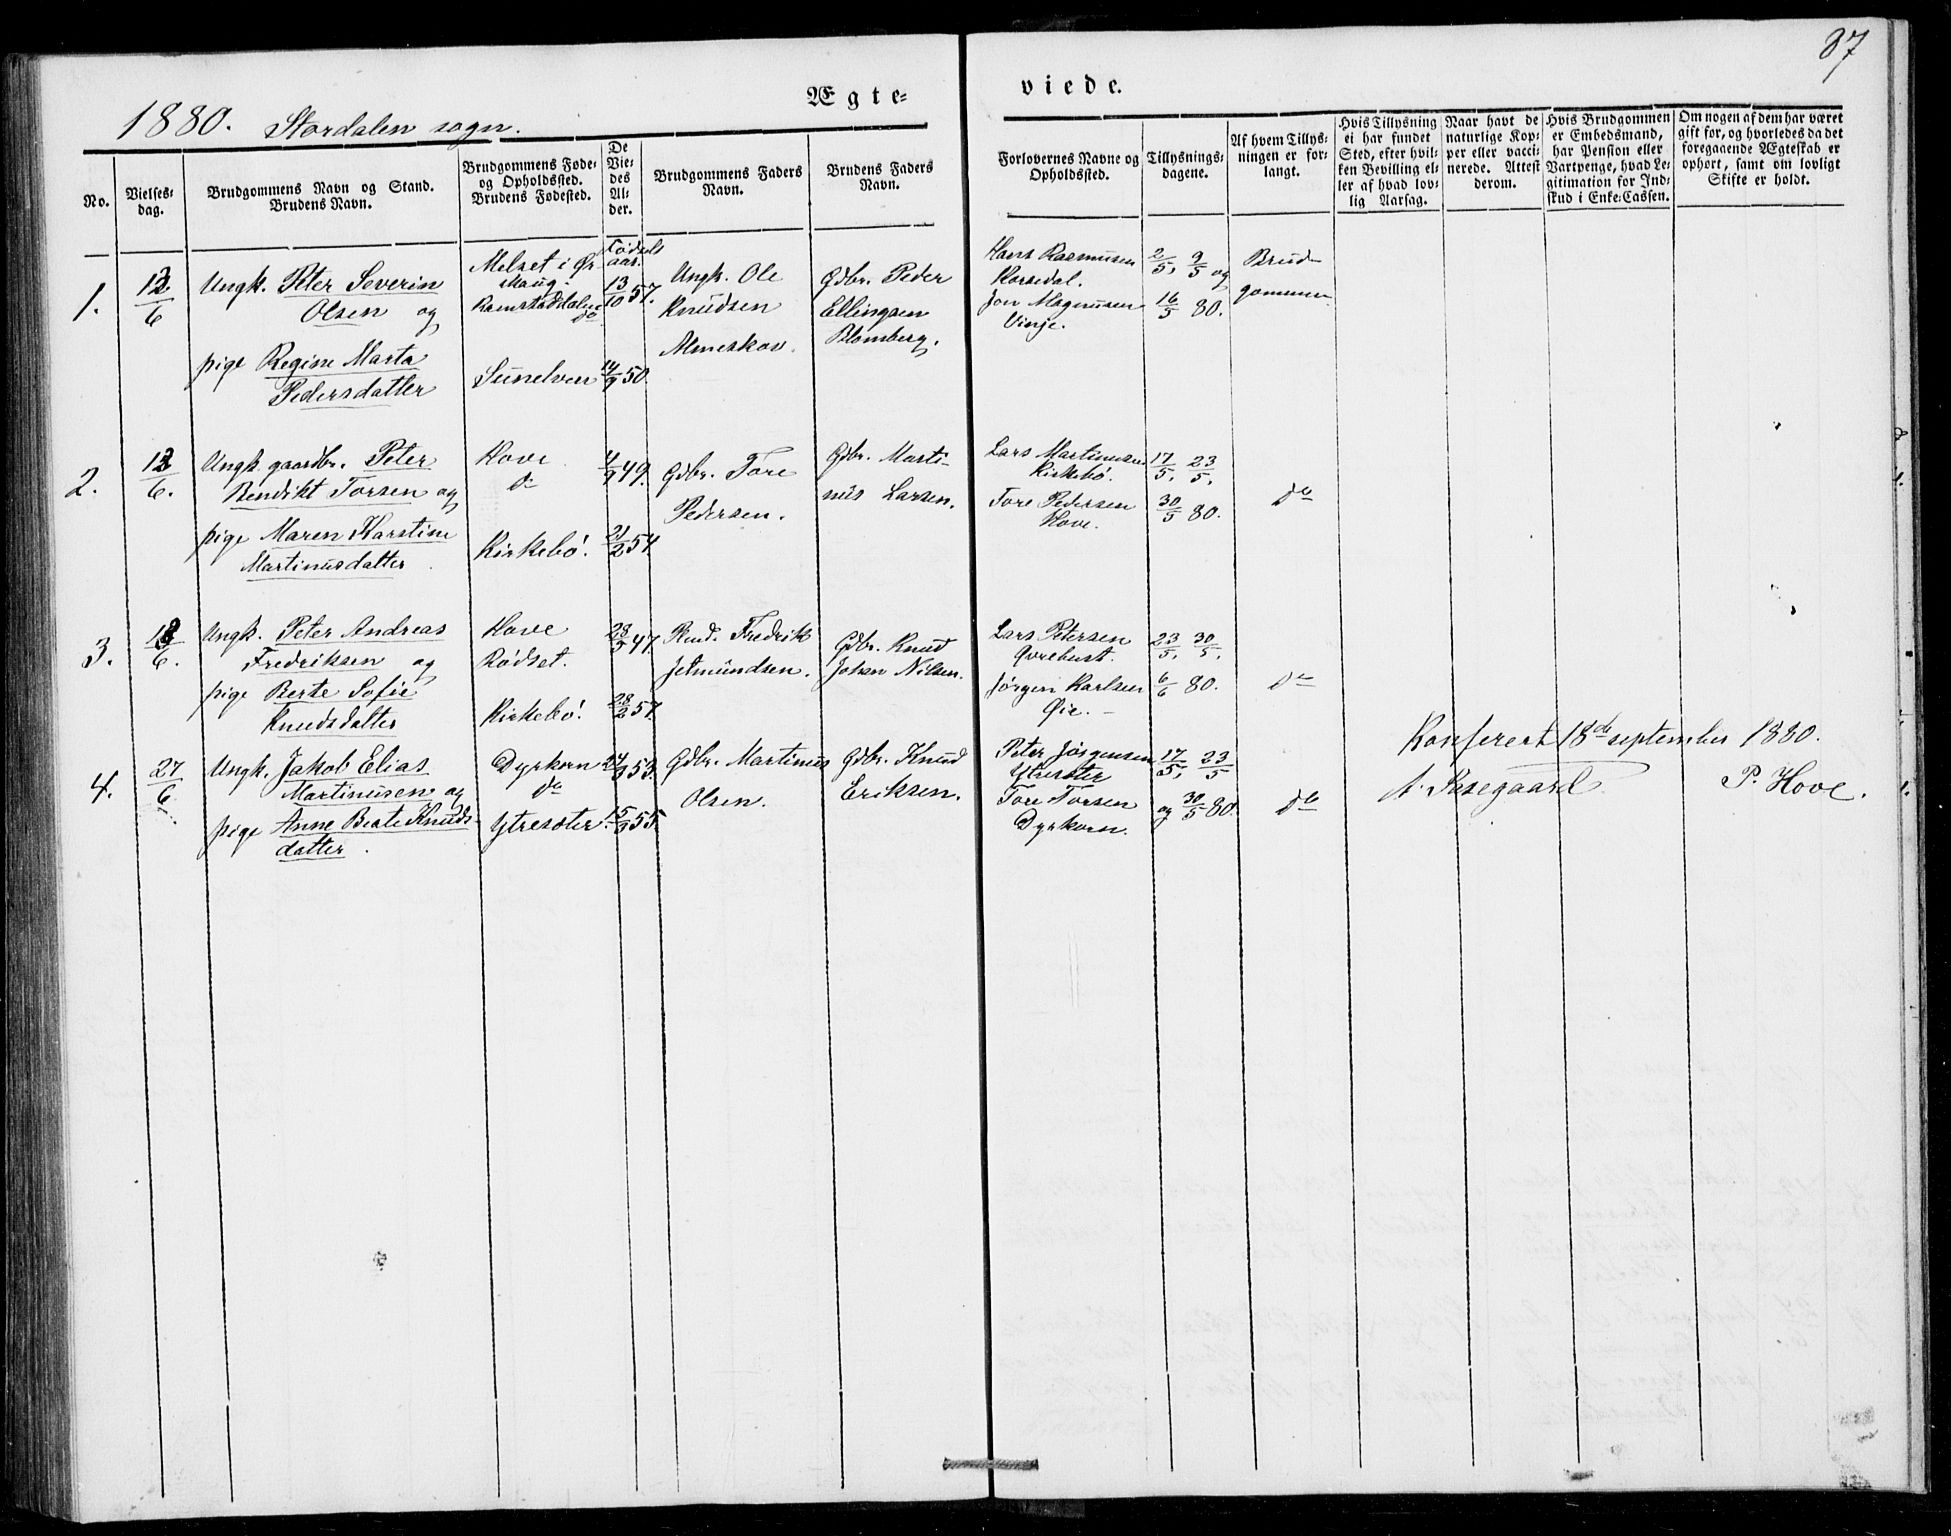 87
Ægte=
viede.
1880. Stordalen sogn.
No.
Vielses-
dag.
Brudgommens Navn og Stand.
Brudens Navn.
Brudgommens Føde-
og Opholdssted.
Brudens Fødested.
De
Vie-
des
Al-
der.
Brudgommens Faders
Navn.
Brudens Faders
Navn.
Forlovernes Navne og
Opholdssted.
Tillysnings-
dagene.
Af hvem Tillys-
ningen er for-
langt.
Hvis Tillysning
ei har fundet
Sted, efter hvil-
ken Bevilling el-
ler af hvad lov-
lig Aarsag.
Naar havt de
naturlige Kop-
per eller vacci-
nerede. Attest
derom.
Hvis Brudgommen
er Embedsmand,
har Pension eller
Vartpenge, hvad Le-
gitimation for Ind-
skud i Enke-Cassen.
Om nogen af dem har været
gift før, og hvorledes da det
foregaaende Ægteskab er
ophørt, samt om lovligt
Skifte er holdt.
Fødsels
aar.
1.
Ungk. Peter Severin
Olsen og
pige Regine Marta
Pedersdatter
Melset i Ør-
skaug.
do
Sunelven
13/10 57.
14/9 50.
Ungk. Ole
Knudsen
Almeskov.
Gdbr. Peder
Ellingsen
Blomberg.
Hans Rasmussen
Korsedal.
Jon Magnusen
Vinje.
2/5, 9/5 og
16/5 80.
Brud-
gommen.
2.
Ungk. gaardbr. Peter
Bendikt Torsen og
pige Maren Karstine
Martinusdatter
Hove
do
Kirkebö.
4/9 49.
21/2 54
Gdbr. Tore
Pedersen.
Gdbr. Marti-
nus Larsen.
Lars Martinusen
Kirkebö.
Tore Pedersen
Hove.
17/5, 23/5,
30/5 80.
do
3.
Ungk. Peter Andreas
Fredriksen og
pige Berte Sofie
Knudsdatter
Hove
Rödset.
Kirkebö.
28/2 57.
Fredrik
Jetmundsen.
Gdbr. Knud
Johan Nilsen.
Lars Petersen
Jørgen Karlsen
Øie.
23/5, 30/5,
6/6 80.
do
4.
27/6
Ungk. Jakob Elias
Martinusen og
pige Anne Berte Knuds-
datter.
Dyrkorn
do
Ytresøter.
15/9 55.
Gdbr. Martinus
Olsen.
Gdbr. Knud
Eriksen.
Peter Jørgensen
Ytresøter
Tore Torsen
Dyrkorn.
17/5, 23/5
og 30/5 80.
do
Konfereret 18de september 1880.
P. Hove.